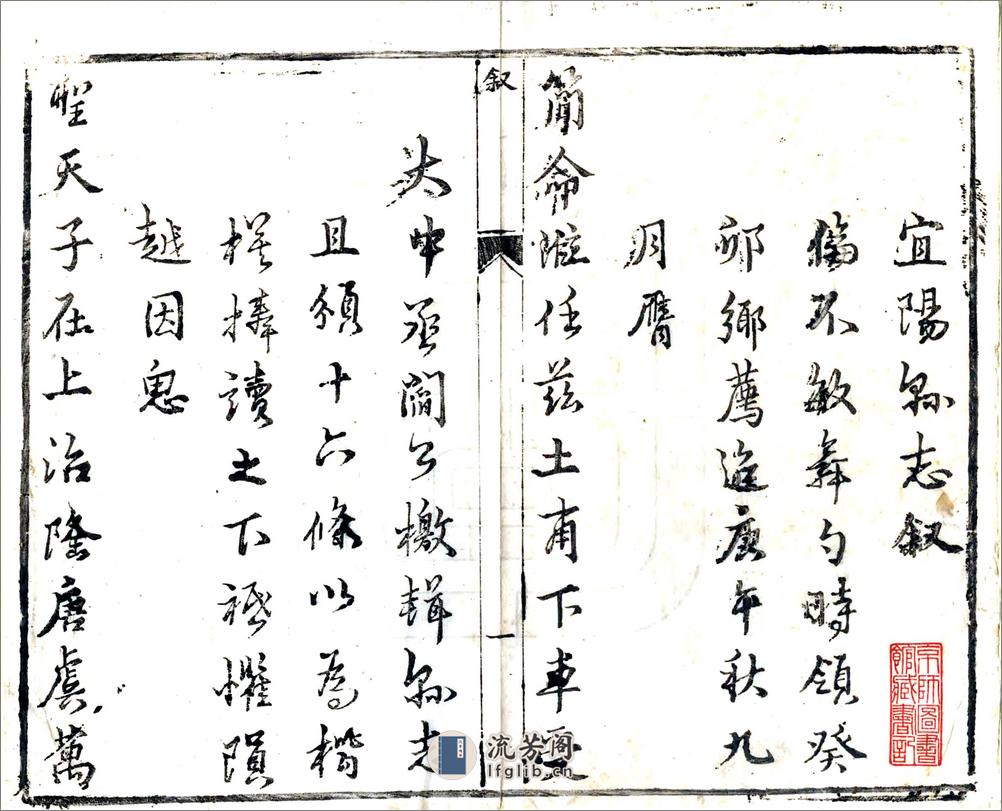 宜陽縣志叙
不敏舞勺時領癸
卯鄉薦迨庚午秋九
月膺
簡命涖任茲土甫下車
叙
一
大中丞閻公檄輯縣志
且頒十六條以為楷
模捧讀之下祗懼隕
越因思
聖天子在上治隆唐虞萬
京師圖書
館藏書記
流芳阁
lfglib.cn